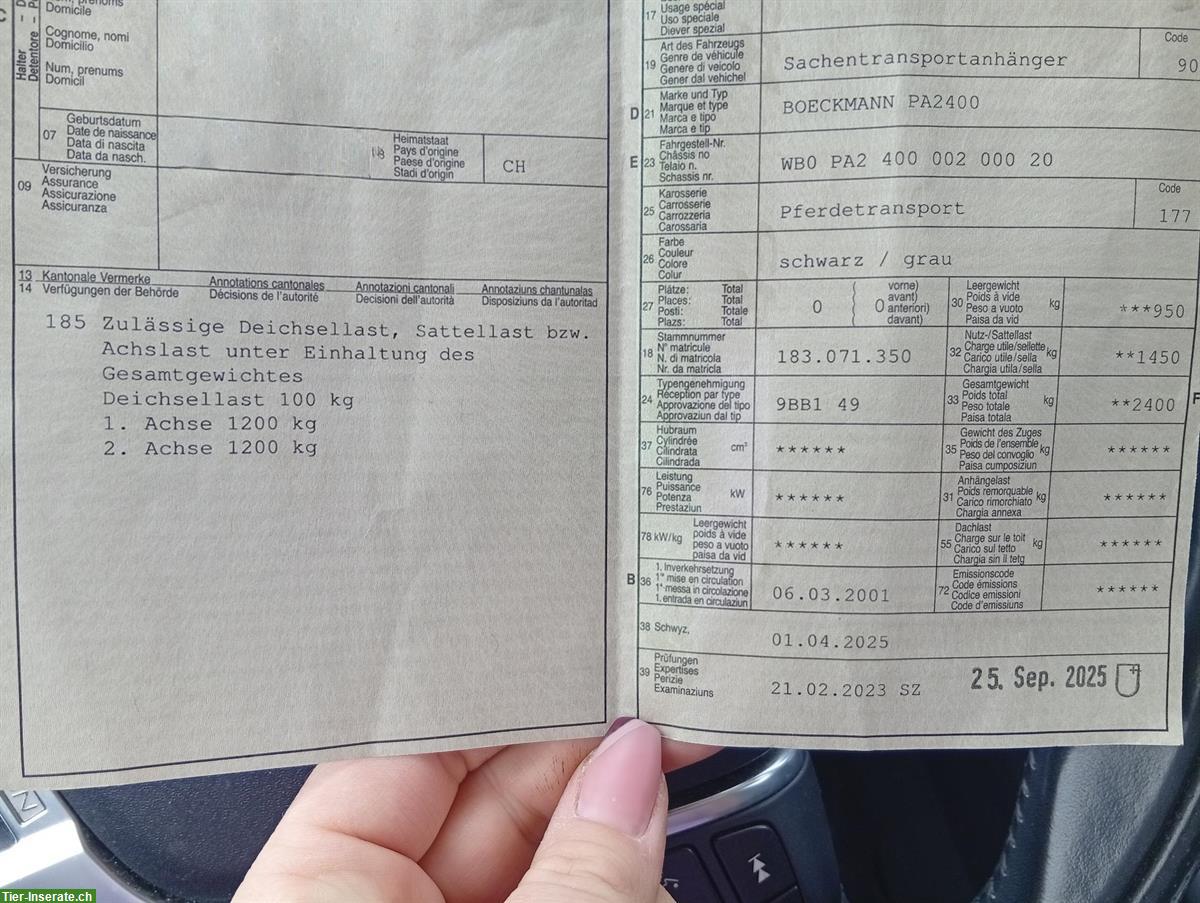 C
Halter
Detentore
prénoms
Domicile
Cognome, nomi
Domicilio
Num, prenums
Domicil
07 Geburtsdatum
Date de naissance
Data di nascita
Data da nasch.
Heimatstaat
Pays d'origine
Paese d'origine
Stadi d'origin
CH
09 Versicherung
Assurance
Assicurazione
Assicuranza
13 Kantonale Vermerke Annotations cantonales Annotazioni cantonali Annotaziuns chantunalas
14 Verfügungen der Behörde Décisions de l'autorité Decisioni dell'autorità Disposiziuns da l'autoritad
185 Zulässige Deichsellast, Sattellast bzw.
Achslast unter Einhaltung des
Gesamtgewichtes
Deichsellast 100 kg
1. Achse 1200 kg
2. Achse 1200 kg
17 Usage spécial
Uso speciale
Diever spezial
19 Art des Fahrzeugs
Genre de véhicule
Genere di veicolo
Gener dal vehichel
Sachentransportanhänger
Code
90
D 21 Marke und Typ
Marque et type
Marca e tipo
Marca e tip
BOECKMANN PA2400
E 23 Fahrgestell-Nr.
Châssis no
Telaio n.
Schassis nr.
WB0 PA2 400 002 000 20
25 Karosserie
Carrosserie
Carrozzeria
Carossaria
Pferdetransport
Code
177
26 Farbe
Couleur
Colore
Colur
schwarz / grau
27 Plätze: Total
Places: Total
Posti: Totale
Plazs: Total
0
0
vorne)
avant)
anteriori)
davant)
30 Leergewicht
Poids à vide
Peso a vuoto
Paisa da vid
kg
***950
18 Stammnummer
N° matricule
N. di matricola
Nr. da matricla
183.071.350
32 Nutz-/Sattellast
Charge utile/sellette
Carico utile/sella
Chargia utila/sella
kg
**1450
24 Typengenehmigung
Réception par type
Approvazione del tipo
Approvaziun dal tip
9BB1 49
33 Gesamtgewicht
Poids total
Peso totale
Paisa totala
kg
**2400
F
37 Hubraum
Cylindrée
Cilindrata
Cilindrada
cm³
******
35 Gewicht des Zuges
Poids de l'ensemble
Peso del convoglio
Paisa cumposiziun
kg
******
76 Leistung
Puissance
Potenza
Prestaziun
kW
******
31 Anhängelast
Poids remorquable
Carico rimorchiato
Chargia annexa
kg
******
78 kW/kg
Leergewicht
poids à vide
peso a vuoto
paisa da vid
******
55 Dachlast
Charge sur le toit
Carico sul tetto
Chargia sin il tetg
kg
******
B 36 1. Inverkehrsetzung
1re mise en circulation
1a messa in circolazione
1. entrada en circulaziun
06.03.2001
72 Emissionscode
Code émissions
Codice emissioni
Code d'emissiuns
******
38 Schwyz,
01.04.2025
39 Prüfungen
Expertises
Perizie
Examinaziuns
21.02.2023 SZ
25. Sep. 2025
N
Tier-Inserate.ch